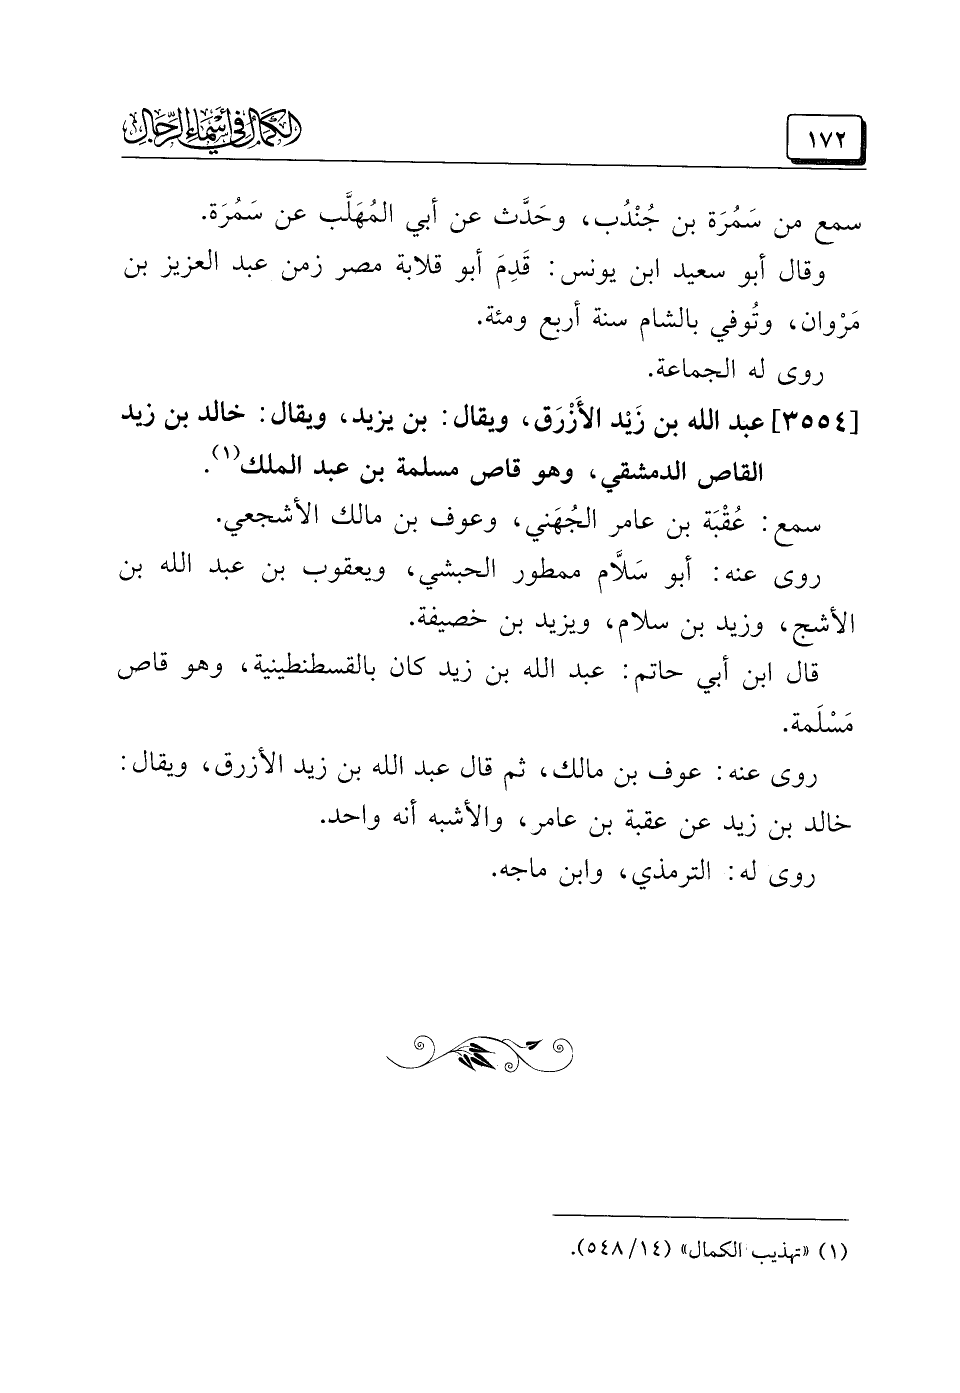 ١٧٢
الكمال في أسماء الرجال
سمع من سَمُرَة بن جُنْدُب، وحَدَّث عن أبي المُهَلَّب عن سَمُرَة.
وقال أبو سعيد ابن يونس: قَدِمَ أبو قلابة مصر زمن عبد العزيز بن
مَرْوان، وتُوفي بالشام سنة أربع ومئة.
روى له الجماعة.
[٣٥٥٤] عبد الله بن زَيْد الأَزْرَق، ويقال: بن يزيد، ويقال: خالد بن زيد
القاص الدمشقي، وهو قاص مسلمة بن عبد الملك(١).
سمع: عُقْبَة بن عامر الجُهَني، وعوف بن مالك الأشجعي.
روى عنه: أبو سَلاَّم ممطور الحبشي، ويعقوب بن عبد الله بن
الأشج، وزيد بن سلام، ويزيد بن خصيفة.
قال ابن أبي حاتم: عبد الله بن زيد كان بالقسطنطينية، وهو قاص
مَسْلَمة.
روى عنه: عوف بن مالك، ثم قال عبد الله بن زيد الأزرق، ويقال:
خالد بن زيد عن عقبة بن عامر، والأشبه أنه واحد.
روى له: الترمذي، وابن ماجه.
(١) «تهذيب الكمال» (١٤/ ٥٤٨).